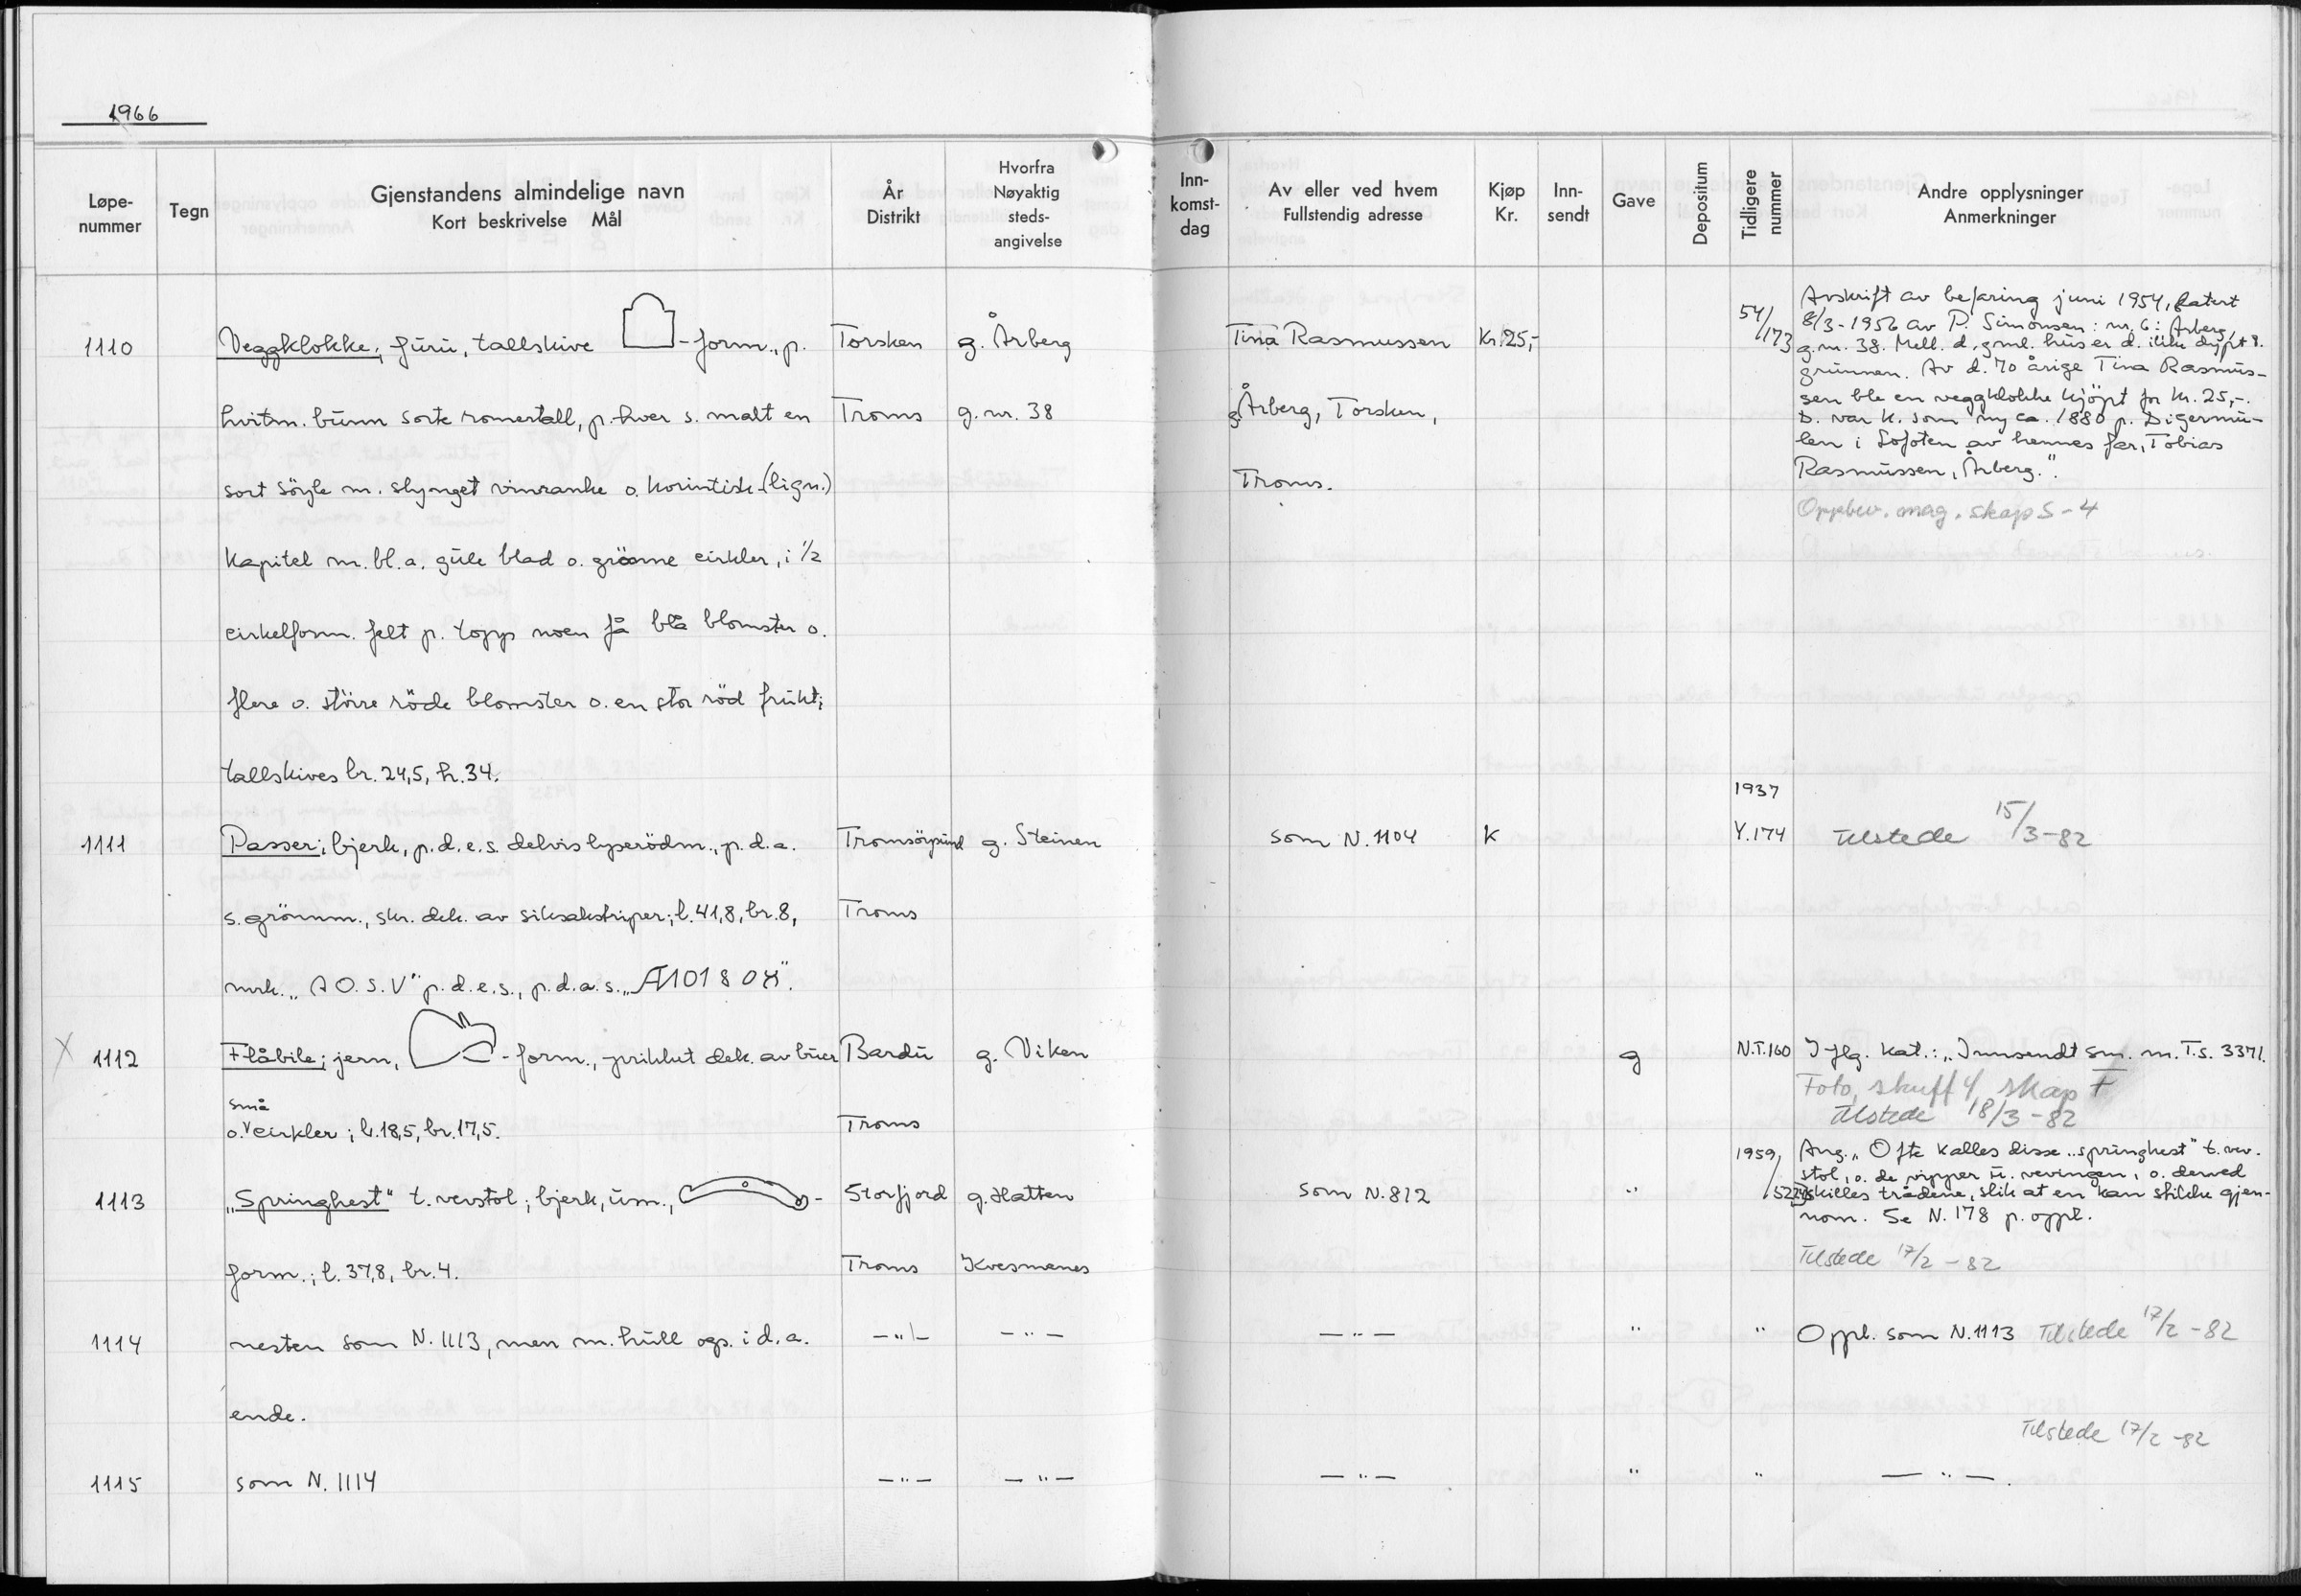 1966
Løpe-
nummer
Tegn
Gjenstandens almindelige navn
Kort beskrivelse Mål
År
Distrikt
Hvorfra
Nøyaktig
steds-
angivelse
Inn-
komst-
dag
Av eller ved hvem
Fullstendig adresse
Kjøp
Kr.
Inn-
sendt
Gave
Depositum
Tidligere
nummer
Andre opplysninger
Anmerkninger
1110
Veggklokke; furu, tallskive -form., p.
hvitm. bunn sorte romertall, p. hver s. malt en
sort söyle m. slynget vinranke o. korintisk-(lign.)
kapitel m. bl.a. gule blad o. grönne cirkler, i 1/2
cirkelform. felt p. topp noen få blå blomster o.
flere o. större röde blomster o. en stor röd frukt;
tallskives br. 24,5, h. 34.
Torsken
Troms
g. Årberg
g.nr. 38
Tina Rasmussen
g. Årberg, Torsken,
Troms.
Kr. 25,-
54/173
Avskrift av befaring juni 1954, datert
8/3-1956 av P. Simonsen: nr. 6: Årberg,
g.nr. 38. Mell. d. gml. hus er d. ikke dypt t.
grunnen. Av d. 70 årige Tina Rasmus-
sen ble en veggklokke kjöpt for kr. 25,-.
D. var k. som ny ca. 1880 p. Digermu-
len i Lofoten av hennes far, Tobias
Rasmussen, Årberg."
Oppbev. mag. skap S-4
1111
Passer; bjerk, p.d.e.s. delvis lyserödm., p.d.a.
s. grönnm., skr. dek. av siksakstriper; l. 41,8, br. 8,
mrk. „A O. S. V" p.d.e.s., p.d.a.s. „
Tromsöysund
Troms
g. Steinen
som N. 1104
K
1937
V.174
Tilstede 15/3-82
X
1112
Flåbile; jern, -form., prikket dek. av buer
små
o. cirkler; l. 18,5, br. 17,5.
Bardu
Troms
g. Viken
g
N.T.160
Iflg. kat.: „Innsendt sm. m. T.s. 3371.
Foto, skuff 4, skap F
Tilstede 18/3-82
1113
„Springhest" t. vevstol; bjerk, um., -
form.; l. 37,8, br. 4.
Storfjord
Troms
g. Hatten
Kvesmenes
som N. 812
"
1959/
Ang. „Ofte kalles disse „springhest" t. vev-
stol, o. de vipper u. vevingen, o. derved
skilles trådene, slik at en kan stikke gjen-
nom. Se N. 178 p. oppl.
Tilstede 17/2-82
1114
nesten som N. 1113, men m. hull ogs. i d.a.
ende.
-"-
-"-
-"-
"
"
Oppl. som N. 1113 Tilstede 17/2-82
Tilstede 17/2-82
1115
som N. 1114
-"-
-"-
-"-
"
"
-"-.